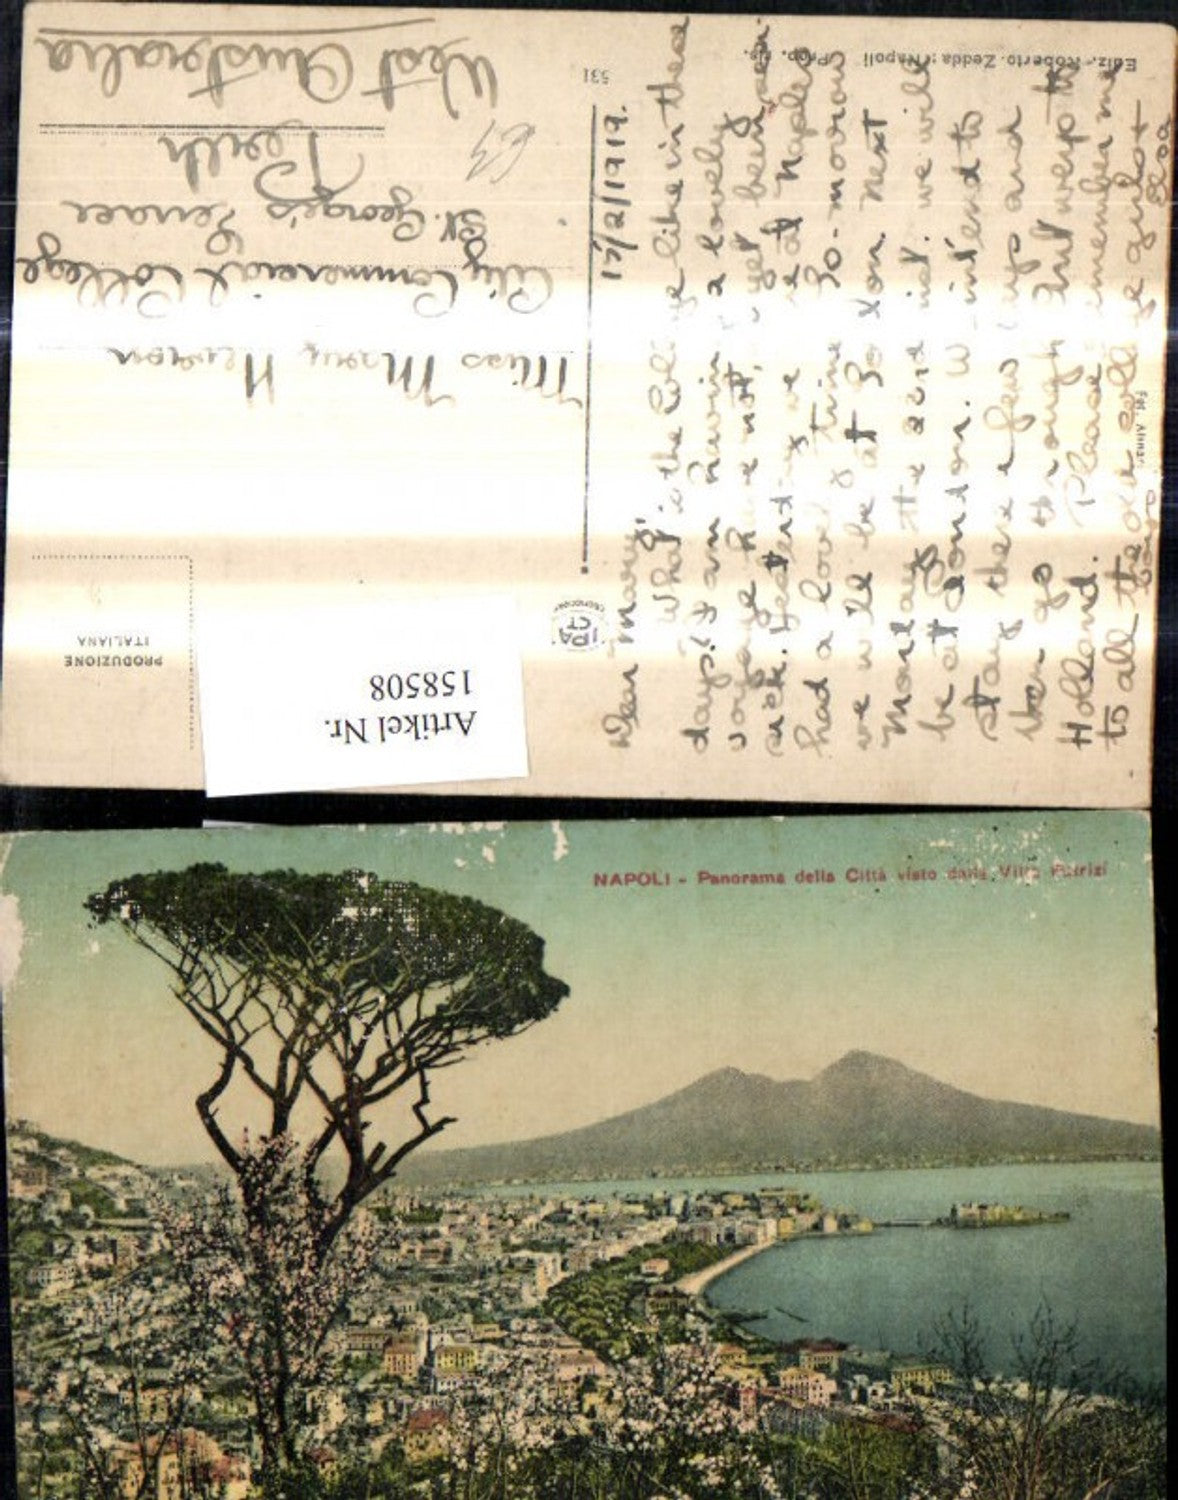 Ediz. Roberto Zedda, Napoli Prop. ris.
531
West Australia
Perth
St. George's Terrace
City Commercial College
Miss Mary Newson
17/2/1919.
Dear Mary
What is the College like in these
days? I am having a lovely
voyage have not yet been sea
sick. Yesterday we at Naples
had a lovely time To-morrow
we will be at Next
Monday the 22nd inst. we will
be at London. We intend to
stay there a few days and
then go through to
Holland. Please remember me
to all the old college
PRODUZIONE
ITALIANA
IPA
CT
Artikel Nr.
158508
NAPOLI - Panorama della Città visto dalla Villa Patrizi